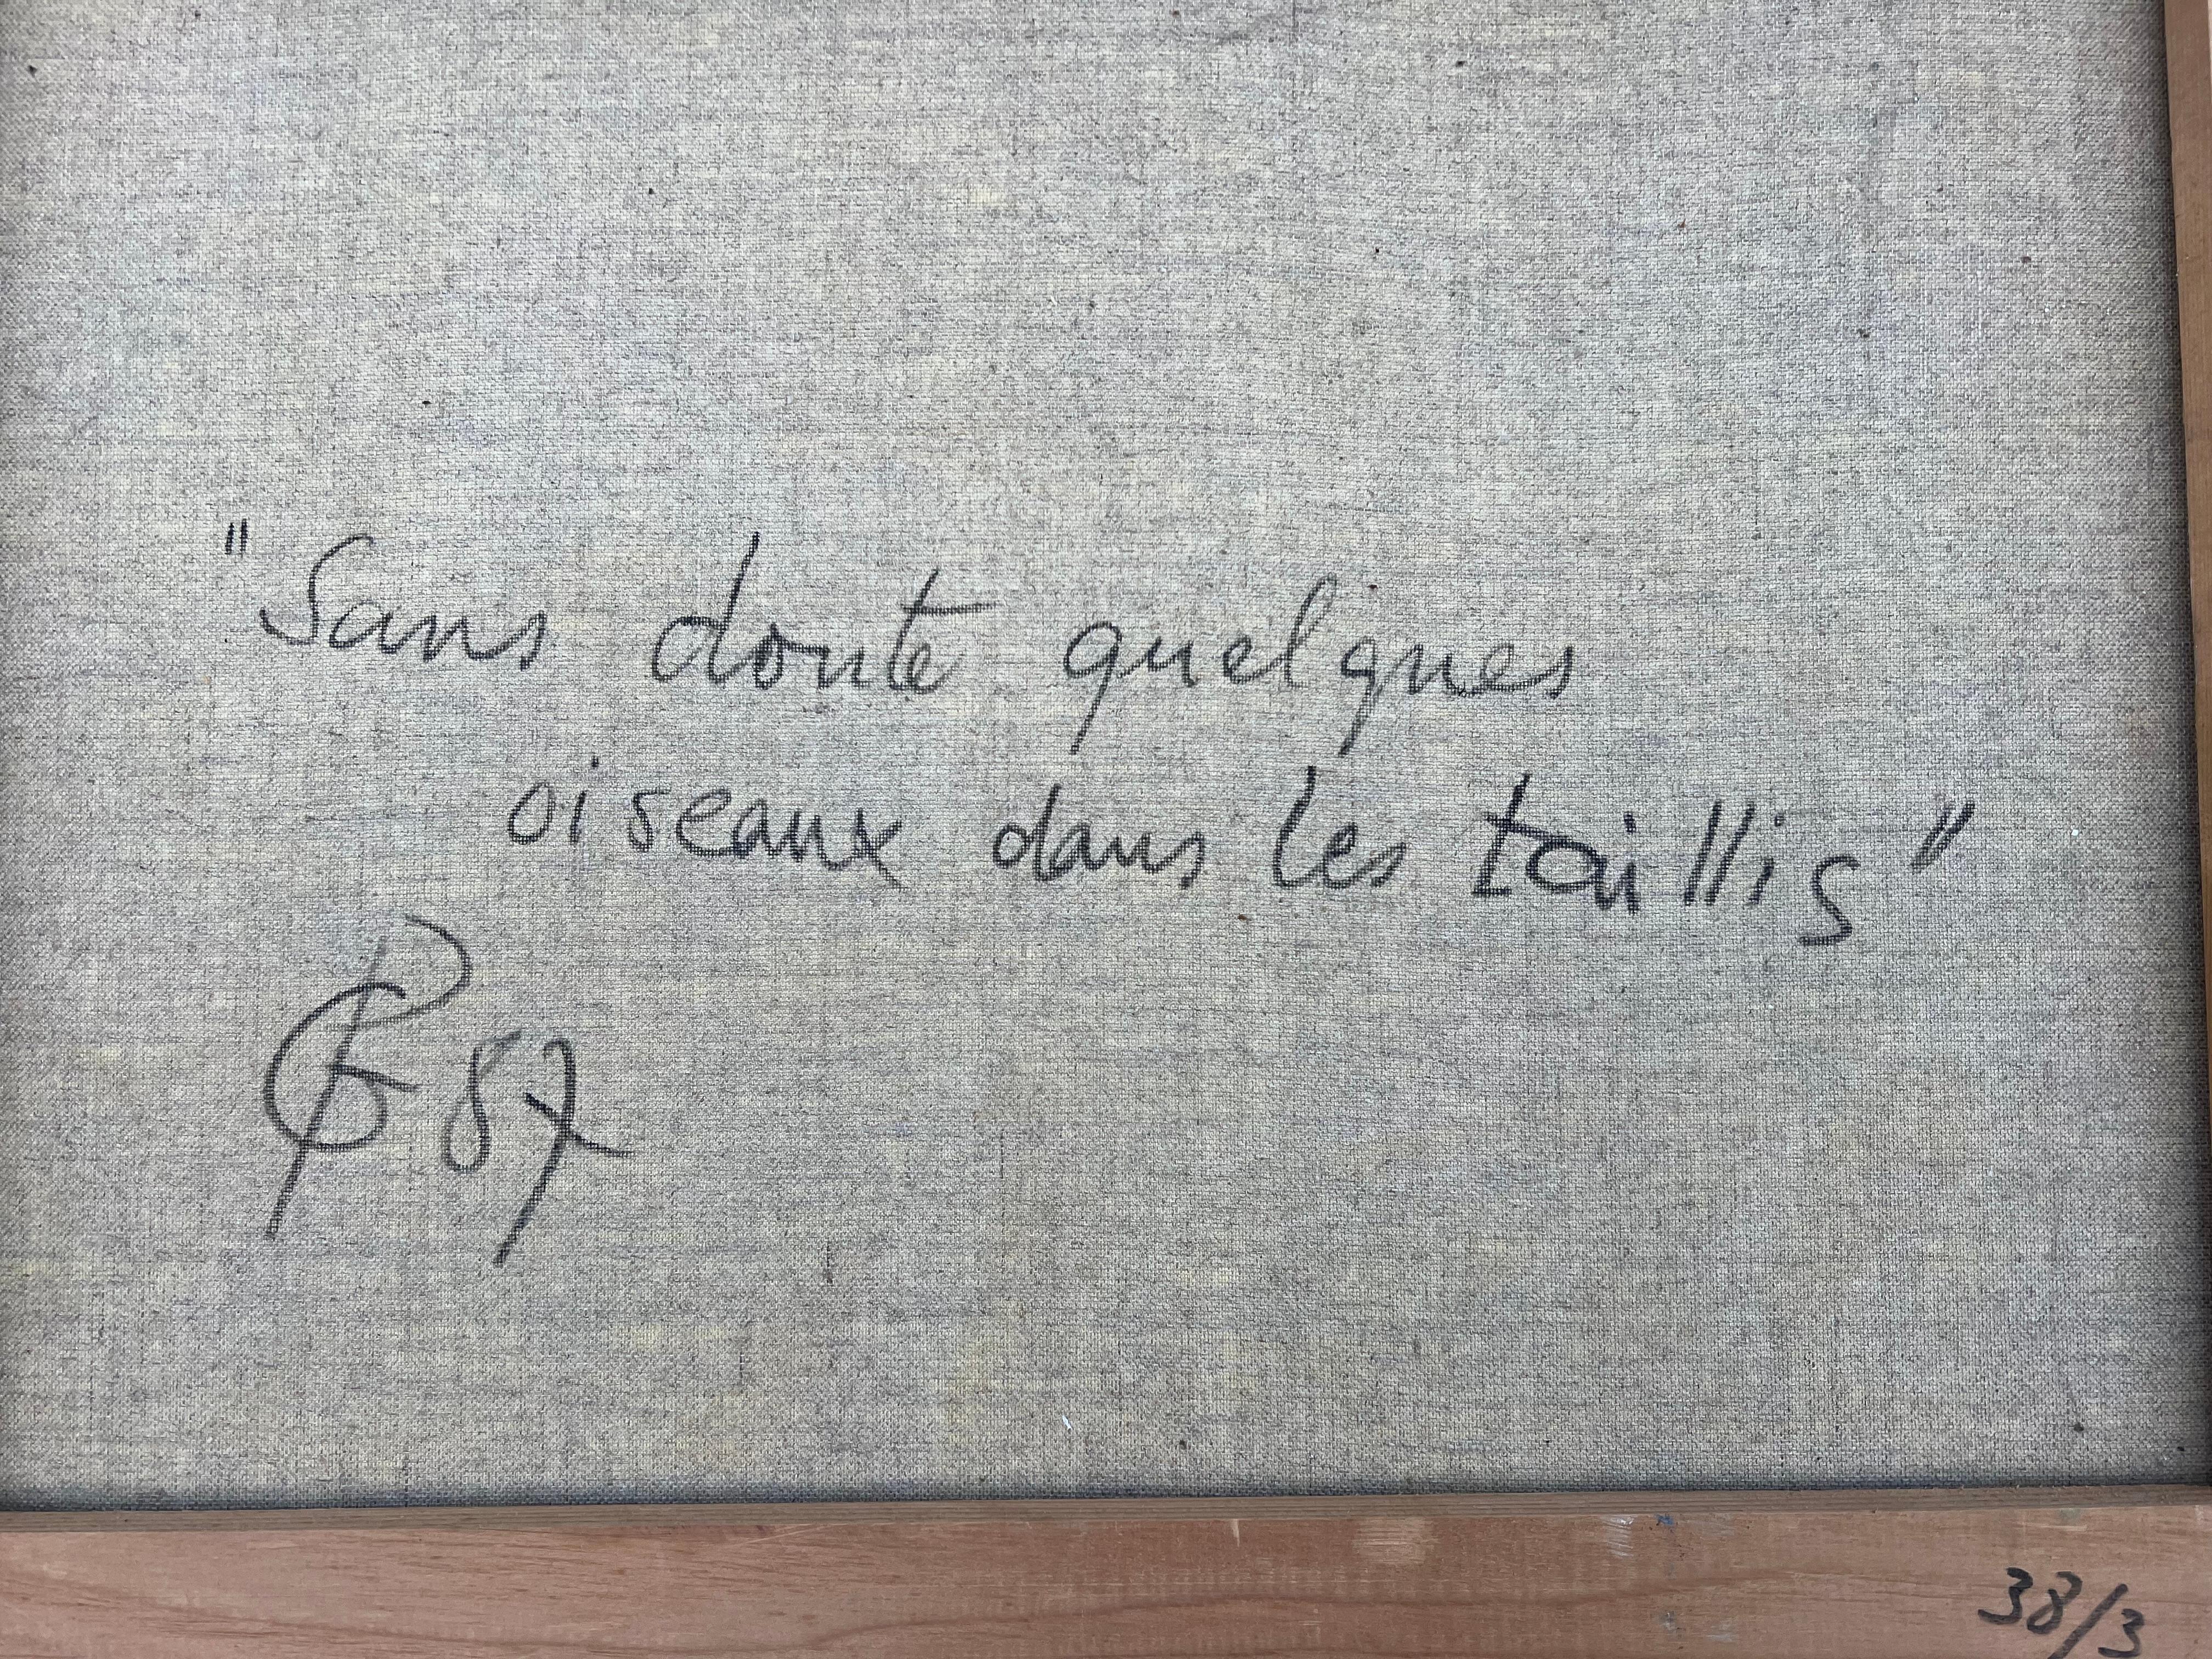 "Sans doute quelques
oiseaux dans les taillis"
87
38/3